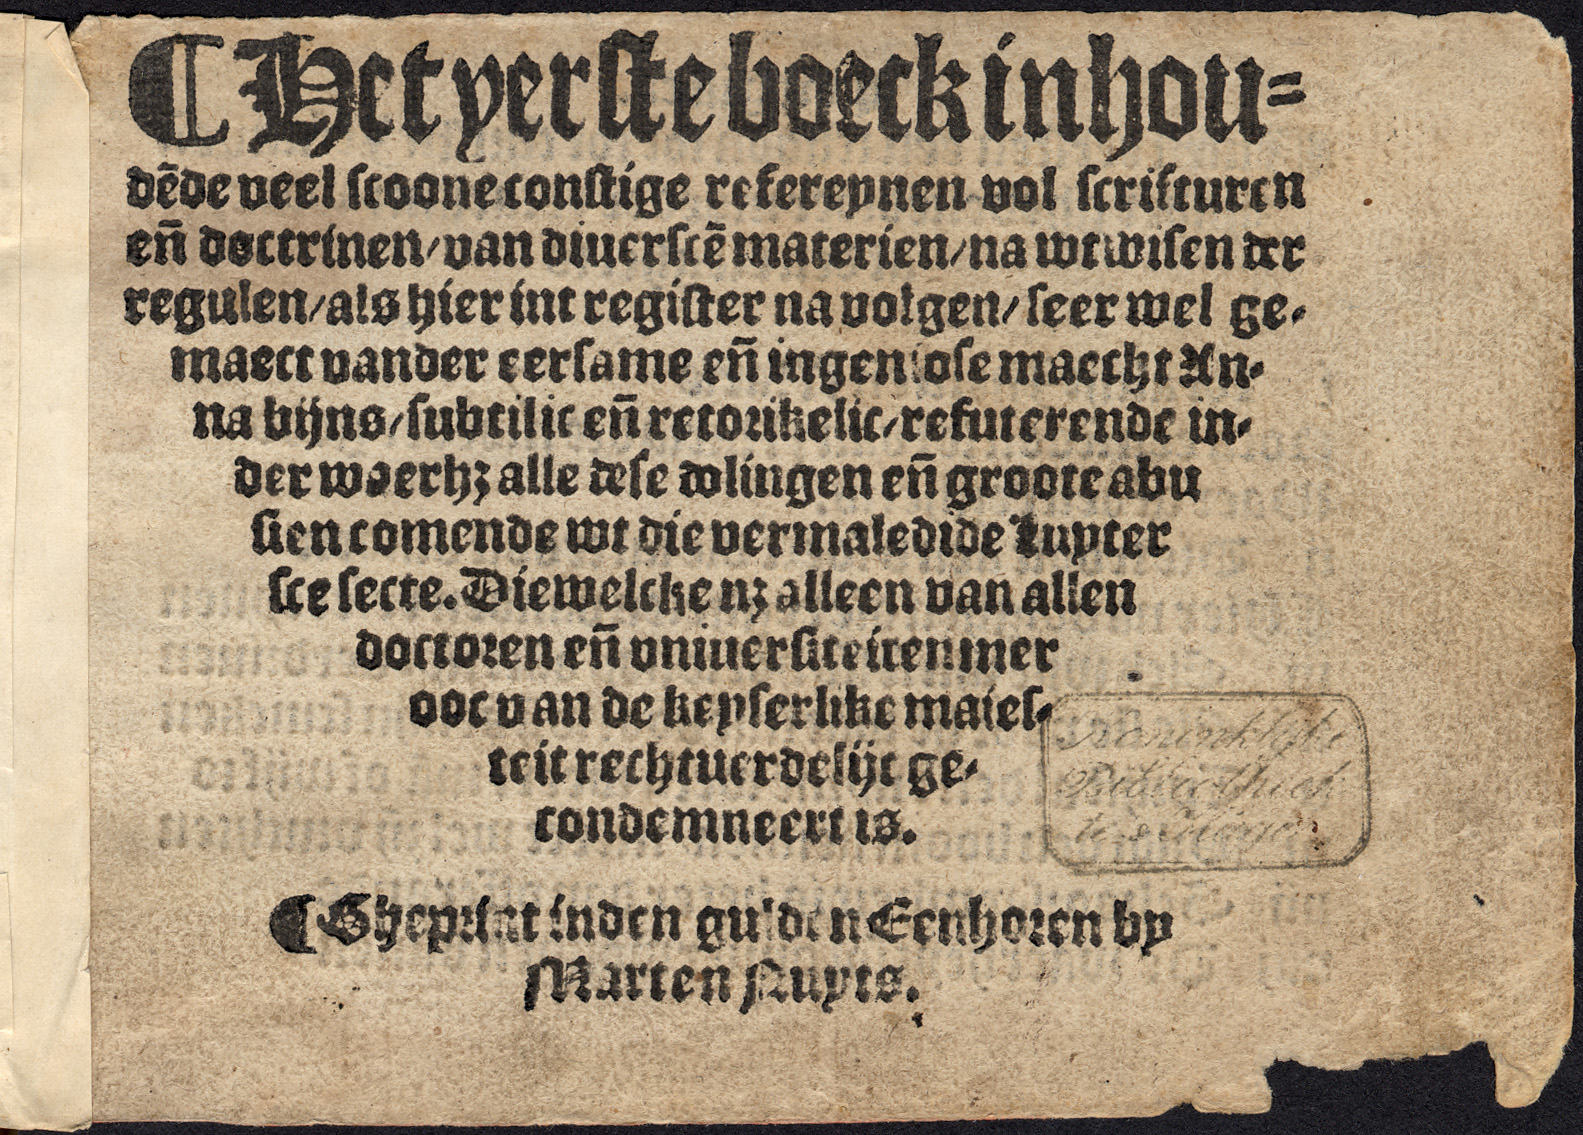 ¶ Het yerste boeck inhou=
dēde veel scoone constige refereynen vol scrifturen
eñ doctrinen/van diuerscē materien/na wtwisen der
regulen/als hier int register na volgen/seer wel ge-
maect vander eersame eñ ingeniose maecht An-
na bijns/subtilic eñ retorikelic/refuterende in-
der waerhꝫ alle dese dolingen eñ groote abu
sien comende wt die vermaledide Luyter
sce secte. Diewelcke nꝫ alleen van allen
doctoren eñ vniuersiteiten mer
ooc van de keyserlike maies-
teit rechtuerdelijc ge-
condemneert is.
¶ Gheprint inden gulden Eenhoren by
Marten Nuyts.
Koninklijke
Bibliotheek
te s'Hage